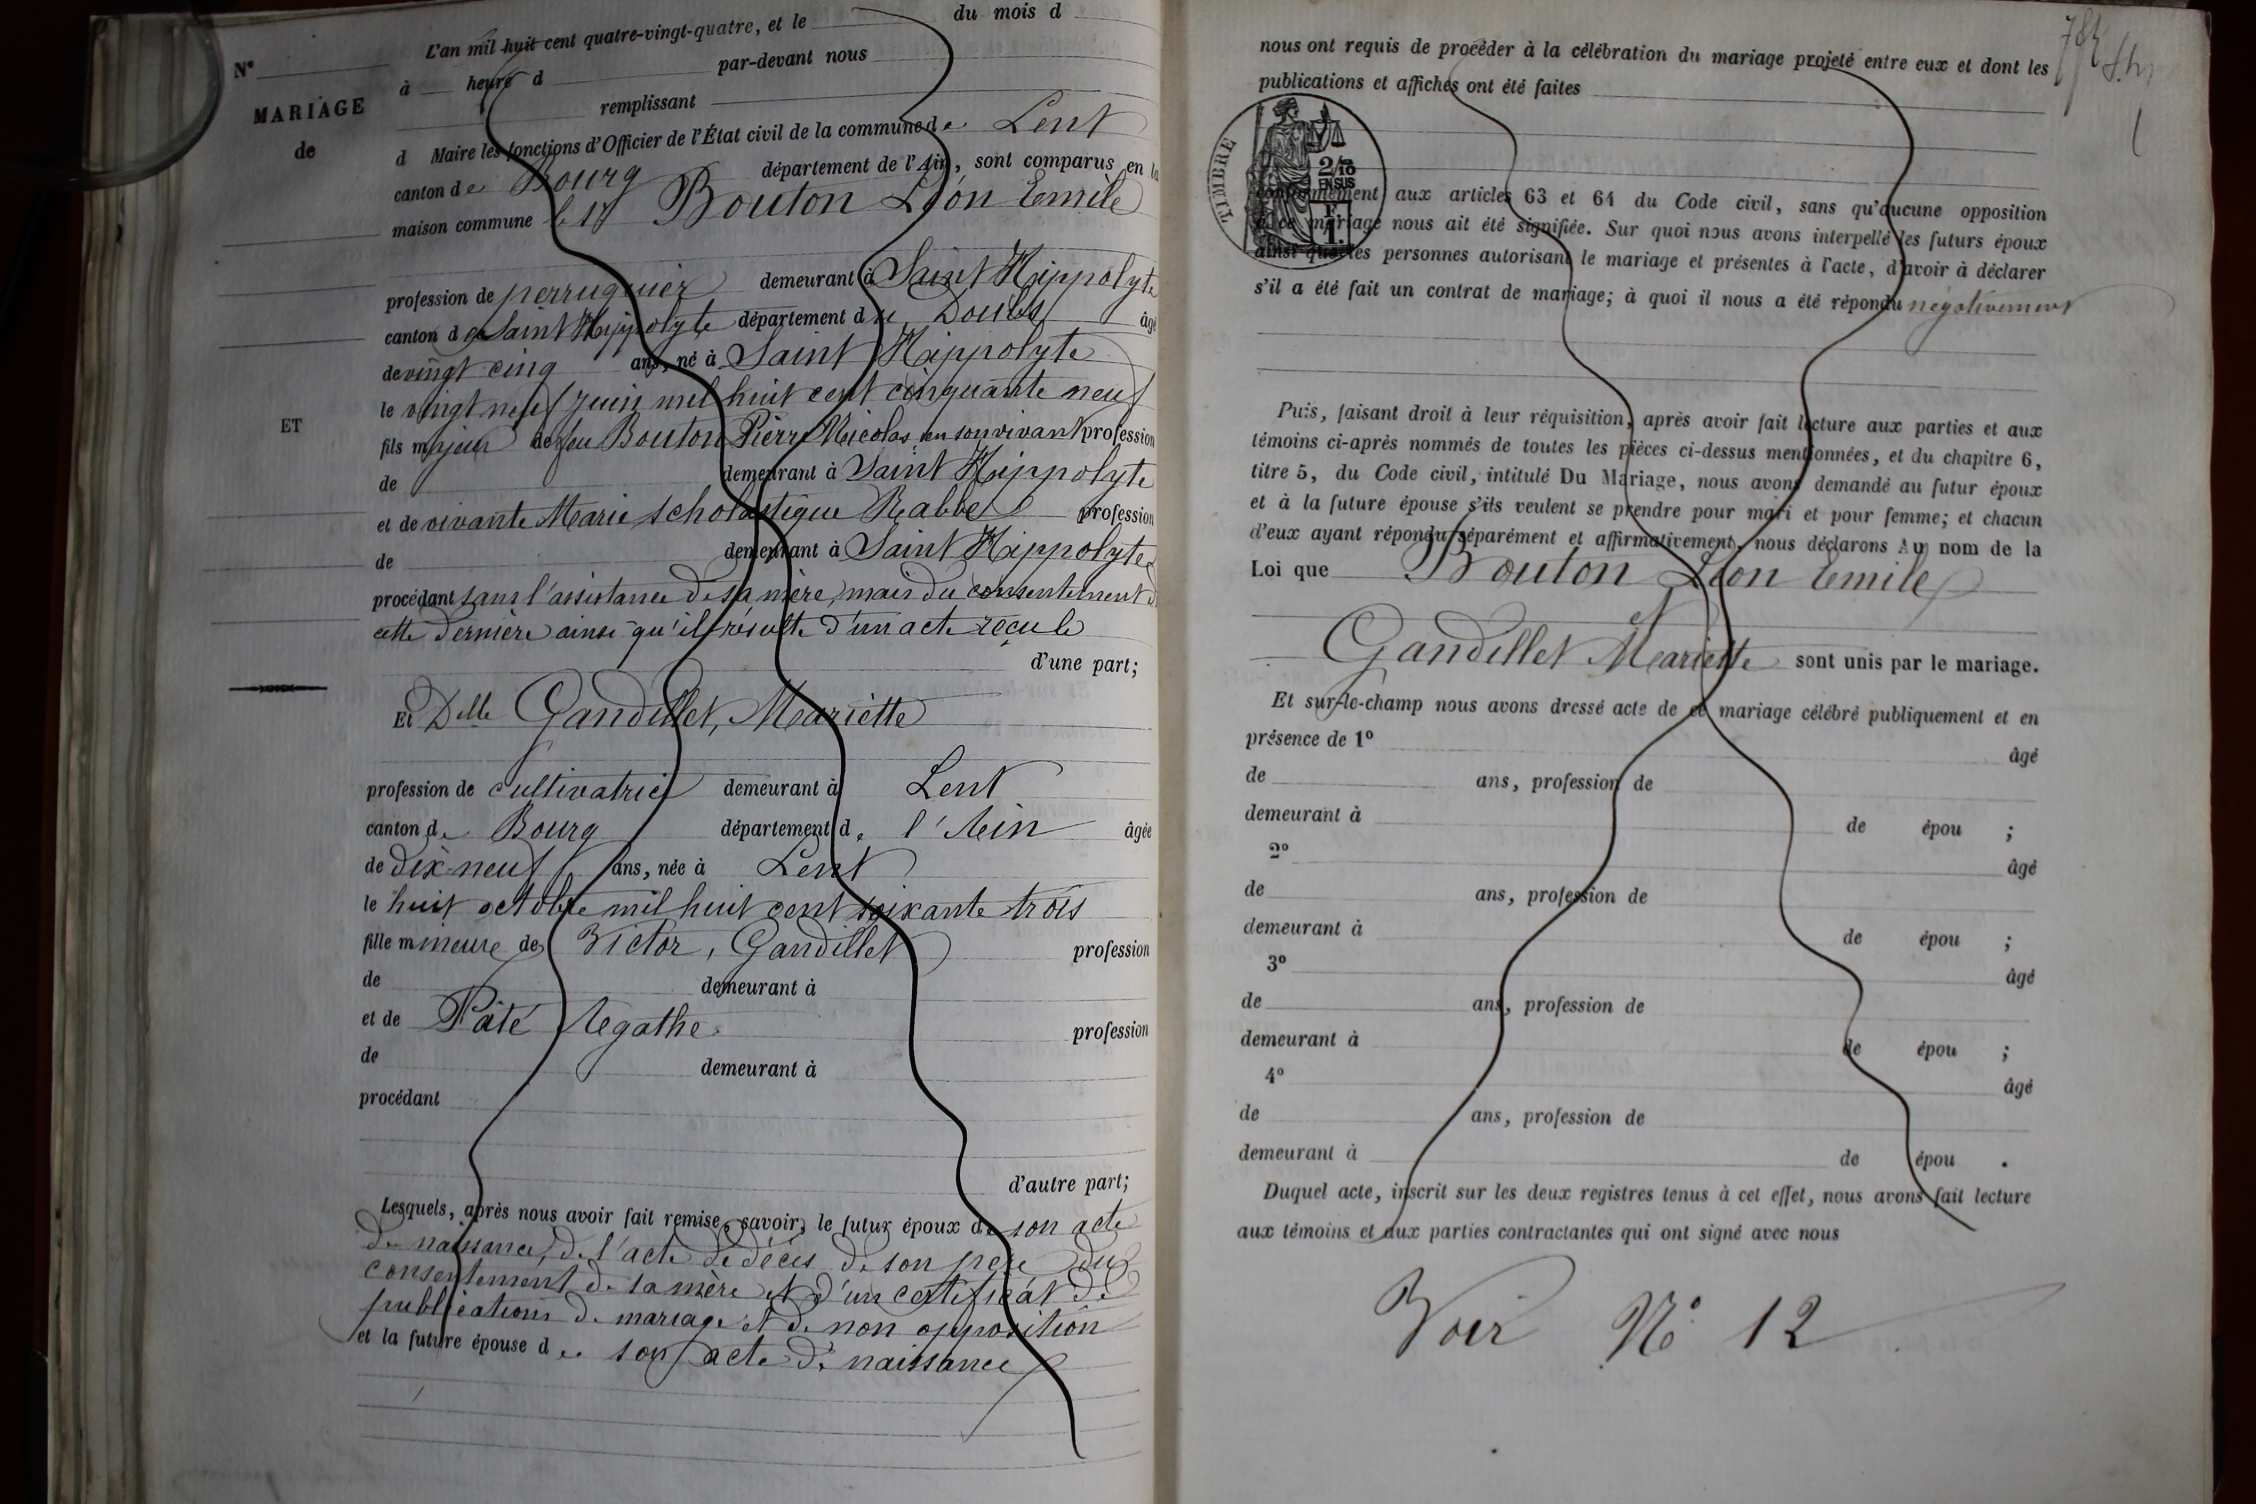 L'an mil huit cent quatre-vingt-quatre, et le du mois d
N° à heure d par-devant nous
MARIAGE remplissant
de d Maire les fonctions d'Officier de l'État civil de la commune de Lent
canton de Bourg département de l'Ain, sont comparus en la
maison commune le Sr Bouton Léon Emile
profession de perruquier demeurant à Saint Hippolyte
canton de Saint Hippolyte département du Doubs âgé
de vingt cinq ans, né à Saint Hippolyte
le vingt neuf juin mil huit cent cinquante neuf
ET
fils majeur de feu Bouton Pierre Nicolas en son vivant profession
de demeurant à Saint Hippolyte
et de vivante Marie Scholastique Rabbe profession
de demeurant à Saint Hippolyte
procédant sans l'assistance de sa mère, mais du consentement de
cette dernière ainsi qu'il résulte d'un acte reçu le
d'une part;
Et Delle Gandillet, Mariette
profession de cultivatrice demeurant à Lent
canton de Bourg département de l'Ain âgée
de dix-neuf ans, née à Lent
le huit octobre mil huit cent soixante trois
fille mineure de Victor, Gandillet profession
de demeurant à
et de Pâté Agathe profession
de demeurant à
procédant
d'autre part;
Lesquels, après nous avoir fait remise, savoir, le futur époux de son acte
de naissance, de l'acte de décès de son père du
consentement de sa mère et d'un certificat de
publications de mariage et de non opposition
et la future épouse de son acte de naissance
nous ont requis de procéder à la célébration du mariage projeté entre eux et dont les
publications et affiches ont été faites
TIMBRE
2/10
EN SUS
F
1.
conformément aux articles 63 et 64 du Code civil, sans qu'aucune opposition
à ce mariage nous ait été signifiée. Sur quoi nous avons interpellé les futurs époux
ainsi que les personnes autorisant le mariage et présentes à l'acte, d'avoir à déclarer
s'il a été fait un contrat de mariage; à quoi il nous a été répondu négativement
Puis, faisant droit à leur réquisition, après avoir fait lecture aux parties et aux
témoins ci-après nommés de toutes les pièces ci-dessus mentionnées, et du chapitre 6,
titre 5, du Code civil, intitulé Du Mariage, nous avons demandé au futur époux
et à la future épouse s'ils veulent se prendre pour mari et pour femme; et chacun
d'eux ayant répondu séparément et affirmativement, nous déclarons Au nom de la
Loi que Bouton Léon Emile
et
Gandillet Mariette sont unis par le mariage.
Et sur-le-champ nous avons dressé acte de ce mariage célébré publiquement et en
présence de 1° âgé
de ans, profession de
demeurant à de épou ;
2° âgé
de ans, profession de
demeurant à de épou ;
3° âgé
de ans, profession de
demeurant à de épou ;
4° âgé
de ans, profession de
demeurant à de épou .
Duquel acte, inscrit sur les deux registres tenus à cet effet, nous avons fait lecture
aux témoins et aux parties contractantes qui ont signé avec nous
Voir N° 12